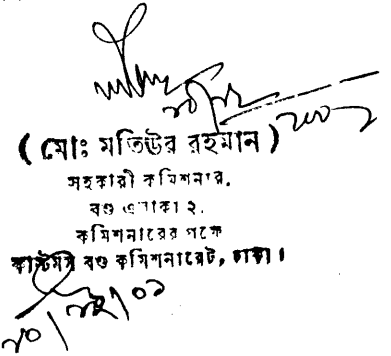 (মোঃ মতিউর রহমান)
সহকারী কমিশনার.
বণ্ড এলাকা ২.
কমিশনারের পক্ষে
কাস্টমস বণ্ড কমিশনারেট, ঢাকা।